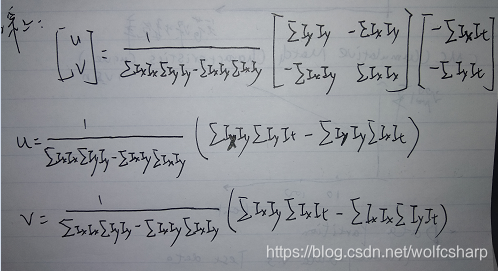 [u v] = 1 / (ΣIxIxΣIyIy - ΣIxIyΣIxIy) [ΣIyIy -ΣIxIy; -ΣIxIy ΣIxIx] [-ΣIxIt; -ΣIyIt]
u = 1 / (ΣIxIxΣIyIy - ΣIxIyΣIxIy) (ΣIxIyΣIyIt - ΣIyIyΣIxIt)
v = 1 / (ΣIxIxΣIyIy - ΣIxIyΣIxIy) (ΣIxIyΣIxIt - ΣIxIxΣIyIt)
https://blog.csdn.net/wolfcsharp